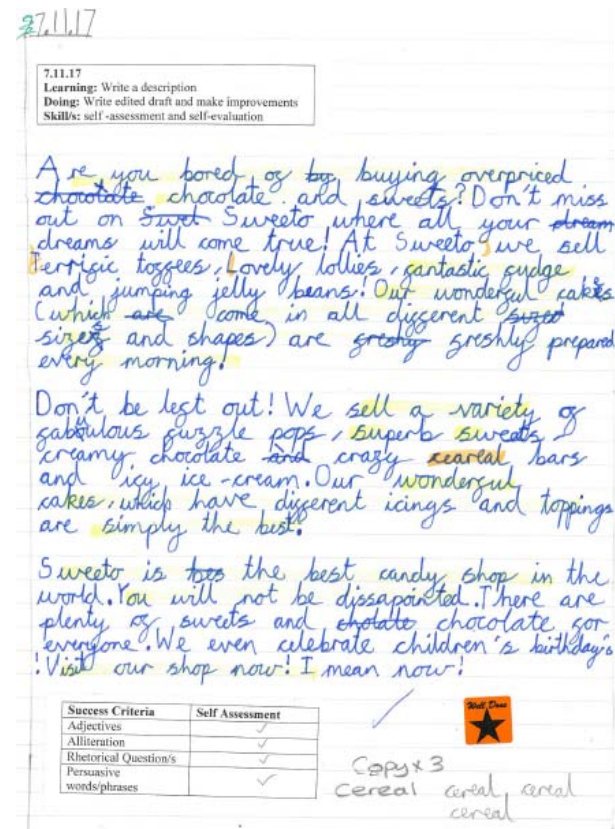 27.11.17
7.11.17
Learning: Write a description
Doing: Write edited draft and make improvements
Skill/s: self -assessment and self-evaluation
Are you bored of by buying overpriced
chocolate chocolate and sweets? Don't miss
out on Swet Sweeto where all your dream
dreams will come true! At Sweeto, we sell
Terrific toffees, Lovely lollies, fantastic fudge
and jumping jelly beans! Our wonderful cakes
(which are come in all different sized
sizes and shapes) are freshy freshly prepared
every morning!
Don't be left out! We sell a variety of
fabulous fuzzle pops, superb sweats,
creamy chocolate and crazy ceareal bars
and icy ice-cream. Our wonderful
cakes, which have different icings and toppings
are simply the best.
Sweeto is the best candy shop in the
world. You will not be dissapointed. There are
plenty of sweets and cholate chocolate for
everyone. We even celebrate children's birthday's
! Visit our shop now! I mean now!
Success Criteria Self Assessment
Adjectives ✓
Alliteration ✓
Rhetorical Question/s ✓
Persuasive
words/phrases ✓
Well Done
Copy x 3
Cereal cereal, cereal
cereal